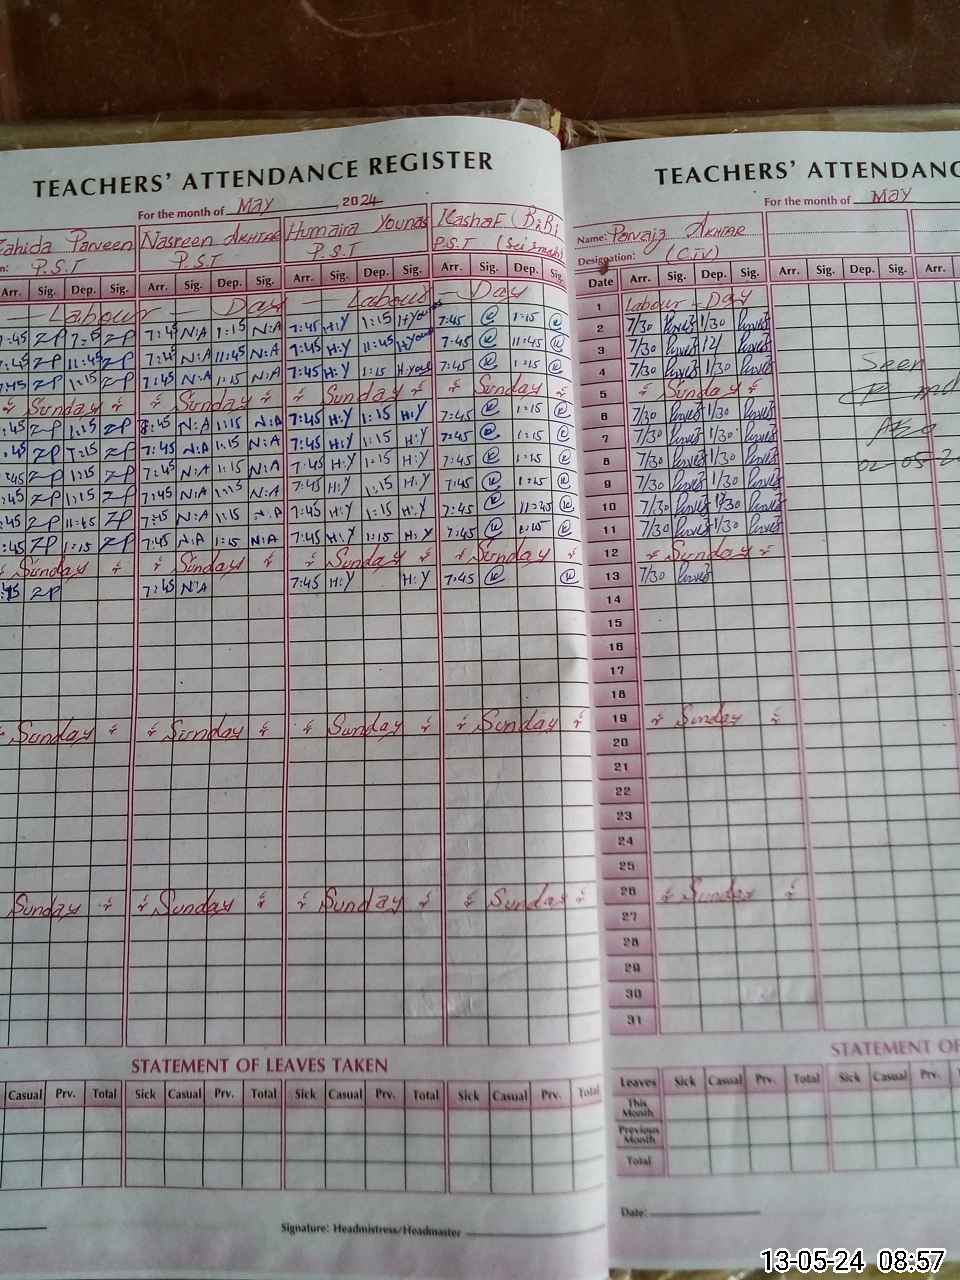 TEACHERS' ATTENDANCE REGISTER
For the month of May, 2024
Zahida Parveen Nasreen Akhtar Humaira Younas Kashaf (BiBi
P.S.T P.S.T P.S.T P.S.T
Arr. Sig. Dep. Sig. Arr. Sig. Dep. Sig. Arr. Sig. Dep. Sig. Arr. Sig. Dep. Sig.
Labour - Day - Labour - Day
7:45 ZP ZP 7:45 N:A 1:15 N:A 7:45 H:Y 1:15 7:45 1:15
7:45 ZP 11:45 ZP N:A 11:45 N:A 7:45 H:Y 11:45 7:45 11:45
7:45 ZP 1:15 ZP 7:45 N:A 1:15 N:A 7:45 H:Y 1:15 7:45 1:15
Sunday Sunday Sunday Sunday
:45 ZP 1:15 ZP N:A 1:15 N:A 7:45 H:Y 1:15 H:Y 7:45 1:15
:45 ZP ZP 7:45 N:A 1:15 N:A 7:45 H:Y 1:15 H:Y 7:45 1:15
:45 ZP 1:15 ZP 7:45 N:A 1:15 N:A 7:45 H:Y 1:15 H:Y 7:45 1:15
:45 ZP 1:15 ZP 7:45 N:A 1:15 N:A 7:45 H:Y 1:15 H:Y 7:45 1:15
:45 ZP 11:45 ZP N:A 1:15 N:A 7:45 H:Y 1:15 H:Y 7:45 11:45
:45 ZP 1:15 ZP 7:45 N:A 1:15 N:A 7:45 H:Y 1:15 H:Y 7:45
Sunday Sunday Sunday Sunday
ZP 7:45 N:A 7:45 H:Y H:Y 7:45
Sunday Sunday Sunday Sunday
Sunday Sunday Sunday Sunday
STATEMENT OF LEAVES TAKEN
Casual Prv. Total Sick Casual Prv. Total Sick Casual Prv. Total Sick Casual Prv. Total
Signature: Headmistress/Headmaster
TEACHERS' ATTENDANC
For the month of May
Name: Pervaiz Akhtar
Designation: (C.T.V)
Date Arr. Sig. Dep. Sig. Arr. Sig. Dep. Sig. Arr.
1 Labour - Day
2 7/30 1/30
3 7/30 12/
4 7/30 1/30 Seen
5 Sunday
6 7/30 1/30
7 7/30 1/30
8 7/30 1/30 02-05-2
9 7/30 1/30
10 7/30
11 7/30 1/30
12 Sunday
13 7/30
14
15
16
17
18
19 Sunday
20
21
22
23
24
25
26 Sunday
27
28
29
30
31
STATEMENT OF
Leaves Sick Casual Prv. Total Sick Casual Prv.
This Month
Previous Month
Total
Date:
13-05-24 08:57